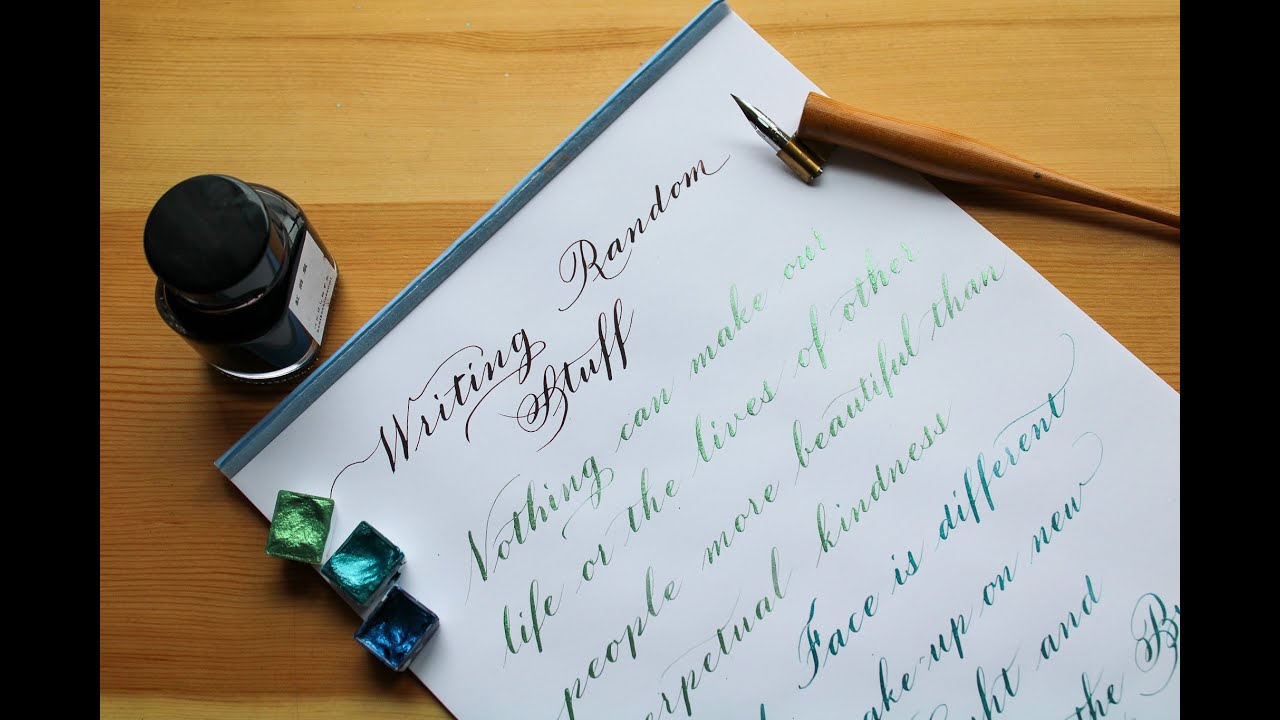 Writing Random
Stuff
Nothing can make our
life or the lives of other
people more beautiful than
perpetual kindness
Face is different
make-up on new
and
the